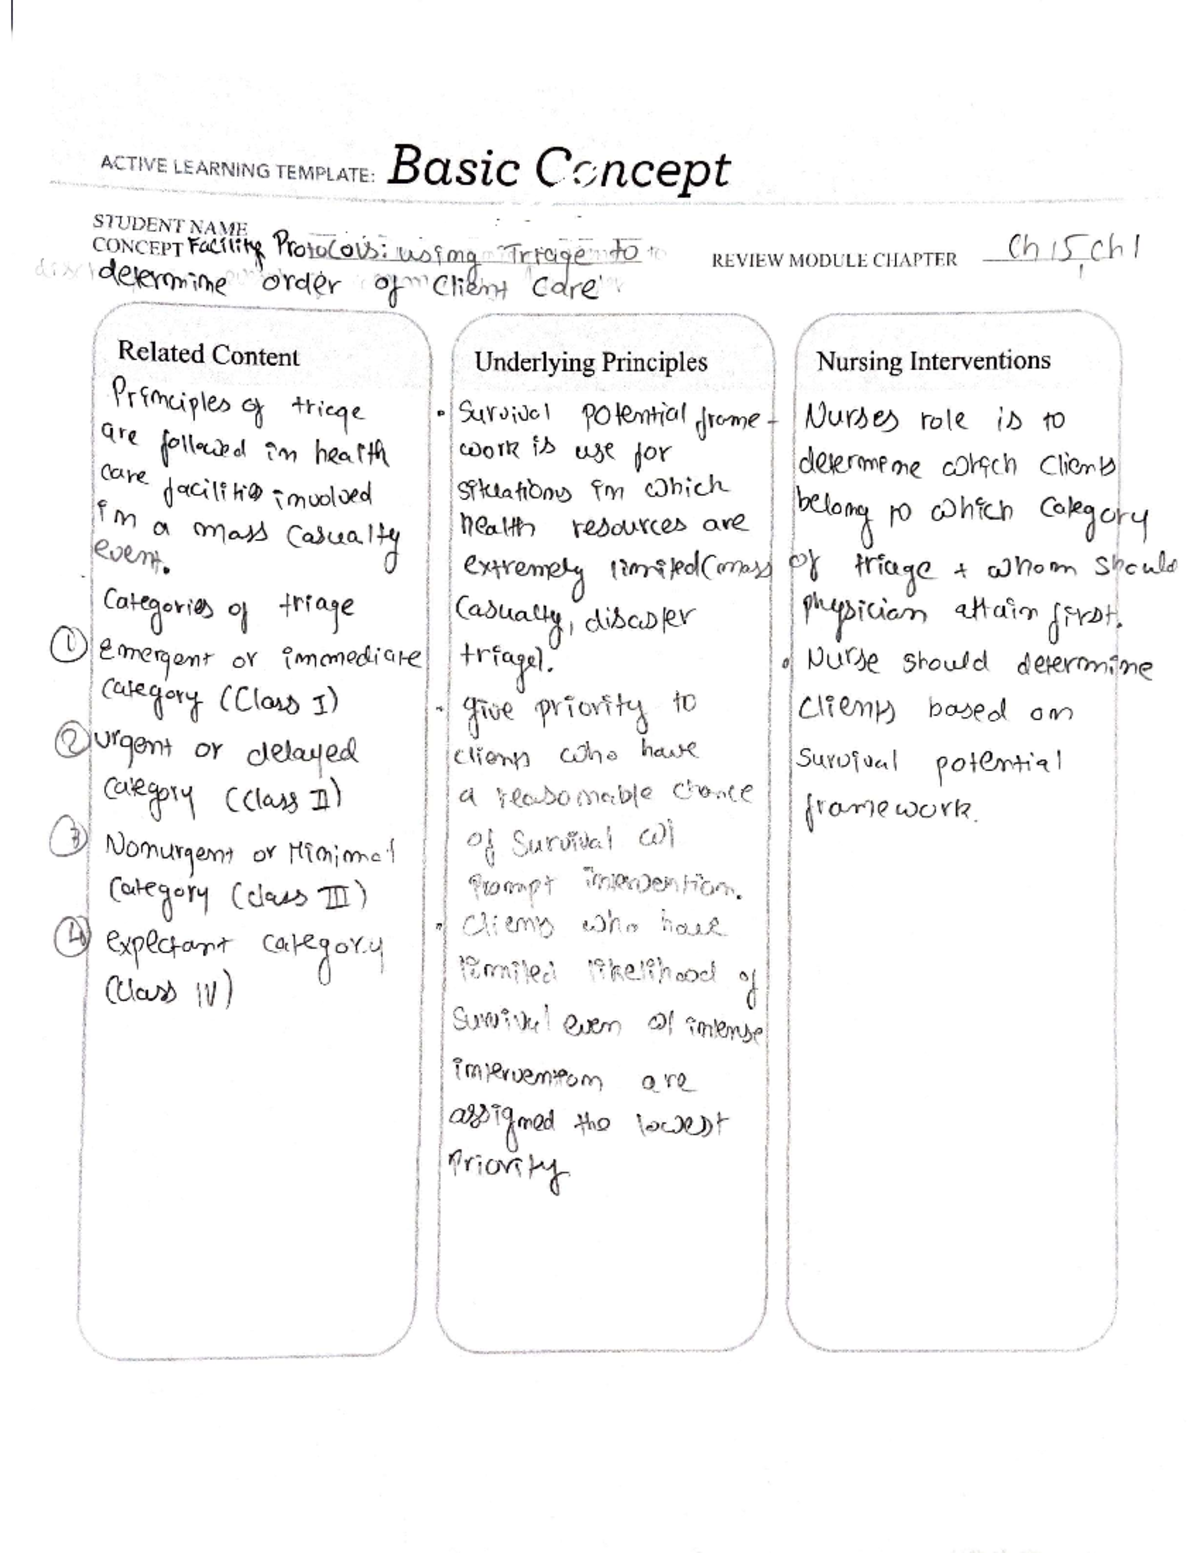 ACTIVE LEARNING TEMPLATE: Basic Concept
STUDENT NAME
CONCEPT Facility Protocols: using Triage to
determine order of Client Care
REVIEW MODULE CHAPTER Ch 15, Ch 1
Related Content
Principles of triage
are followed in health
care facilities involved
in a mass casualty
event.
Categories of triage
① Emergent or immediate
category (Class I)
② urgent or delayed
category (Class II)
③ Nonurgent or Minimal
category (class III)
④ expectant category
(Class IV)
Underlying Principles
• Survival potential frame-
work is use for
situations in which
health resources are
extremely limited (mass
Casualty, disaster
triage).
• give priority to
clients who have
a reasonable chance
of Survival w/
Prompt intervention.
• Clients who have
limited likelihood of
Survival even w/ intense
intervention are
assigned the lowest
Priority
Nursing Interventions
Nurses role is to
determine which Clients
belong to which Category
of triage + whom should
physician attain first.
• Nurse should determine
Clients based on
Survival potential
framework.